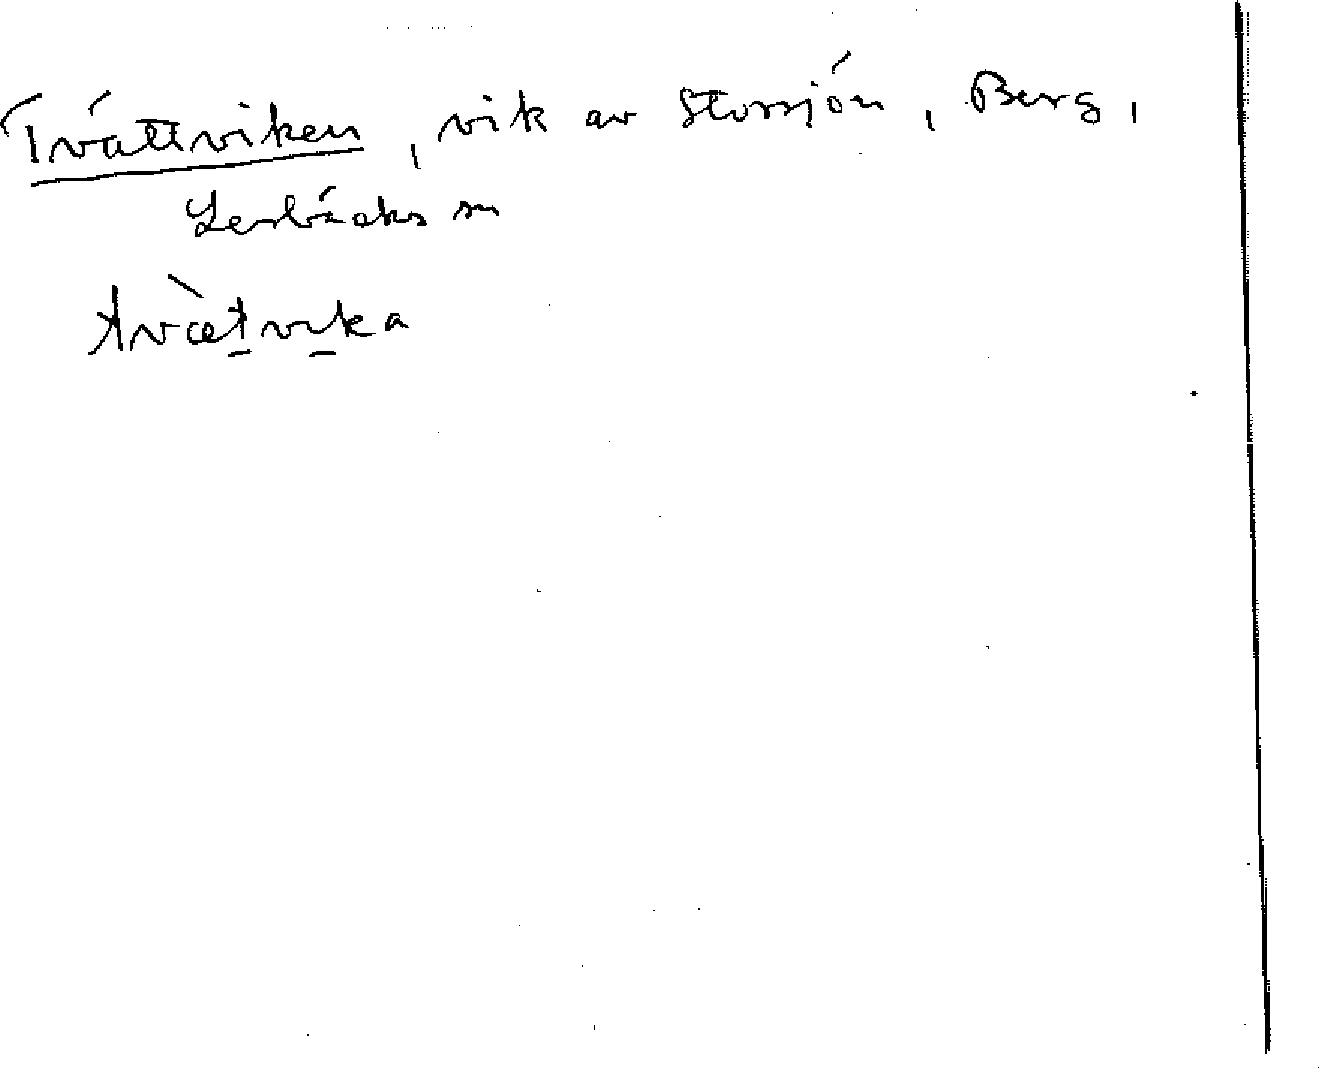 Tvättviken, vik av Storsjön, Berg,
Lerbäcks sn
tvæ̀t̠vi̠ka